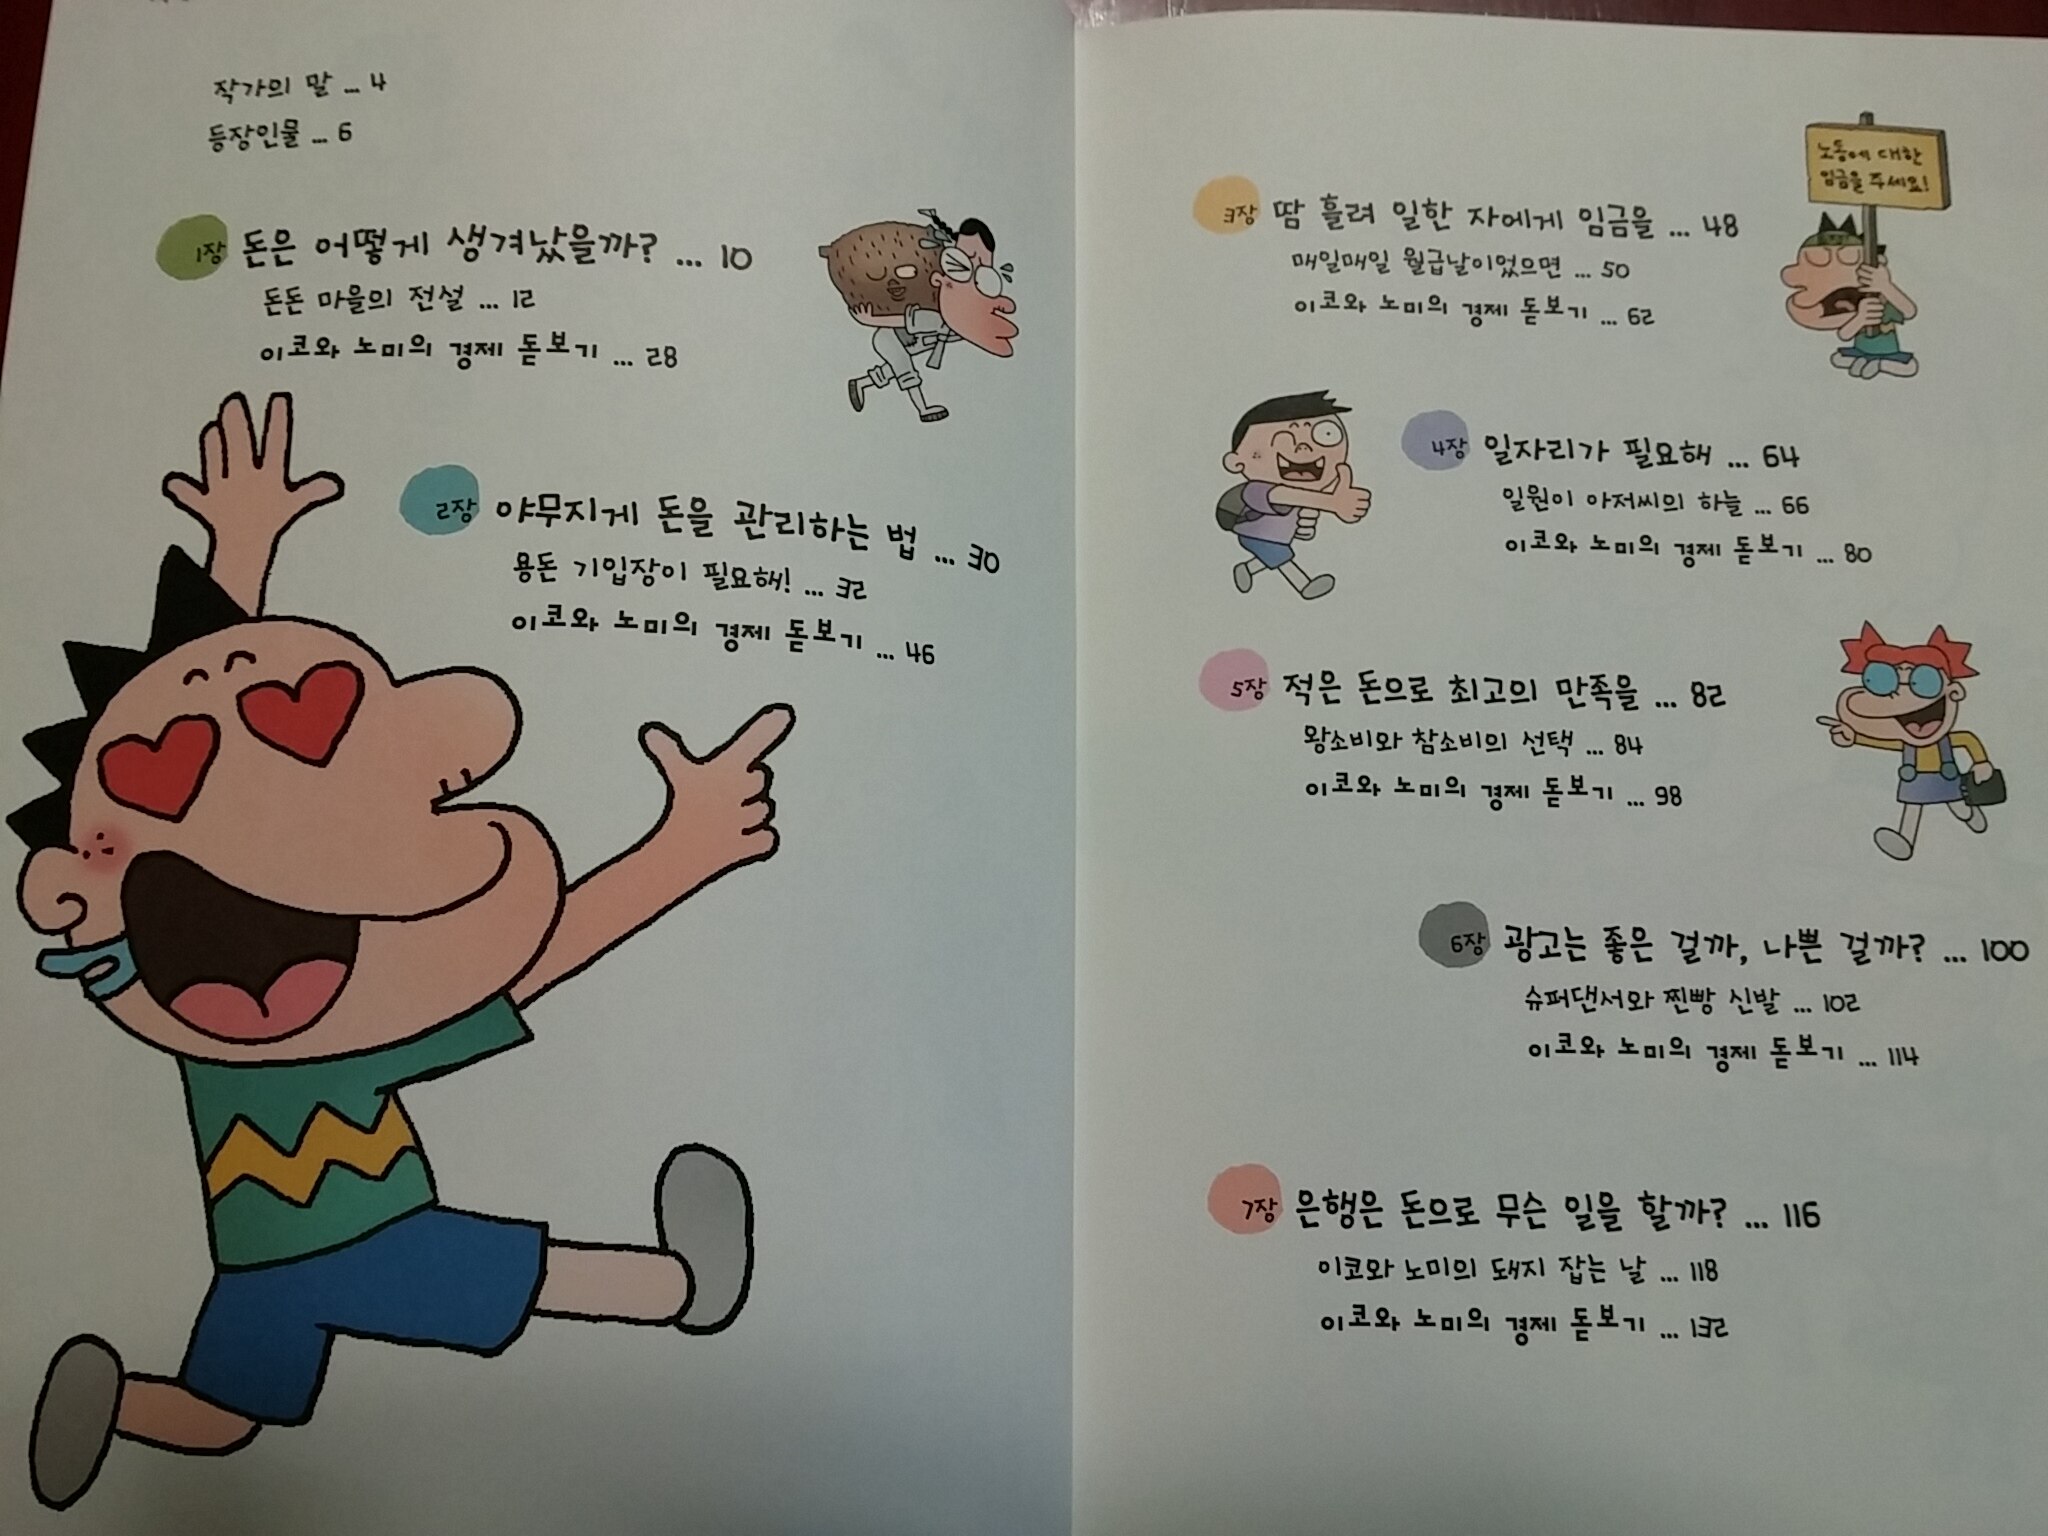 작가의 말 ... 4
등장인물 ... 6
1장 돈은 어떻게 생겨났을까? ... 10
돈돈 마을의 전설 ... 12
이코와 노미의 경제 돋보기 ... 28
2장 야무지게 돈을 관리하는 법 ... 30
용돈 기입장이 필요해! ... 32
이코와 노미의 경제 돋보기 ... 46
노동에 대한
임금을 주세요!
3장 땀 흘려 일한 자에게 임금을 ... 48
매일매일 월급날이었으면 ... 50
이코와 노미의 경제 돋보기 ... 62
4장 일자리가 필요해 ... 64
일원이 아저씨의 하늘 ... 66
이코와 노미의 경제 돋보기 ... 80
5장 적은 돈으로 최고의 만족을 ... 82
왕소비와 참소비의 선택 ... 84
이코와 노미의 경제 돋보기 ... 98
6장 광고는 좋은 걸까, 나쁜 걸까? ... 100
슈퍼댄서와 찐빵 신발 ... 102
이코와 노미의 경제 돋보기 ... 114
7장 은행은 돈으로 무슨 일을 할까? ... 116
이코와 노미의 돼지 잡는 날 ... 118
이코와 노미의 경제 돋보기 ... 132